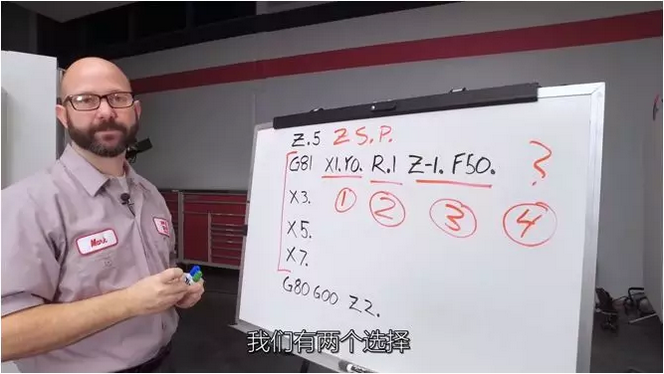 Z.5 Z S.P.
G81 X1.Y0. R.1 Z-1. F50. ?
X3. 1 2 3 4
X5.
X7.
G80 G00 Z2.
Mark
我们有两个选择